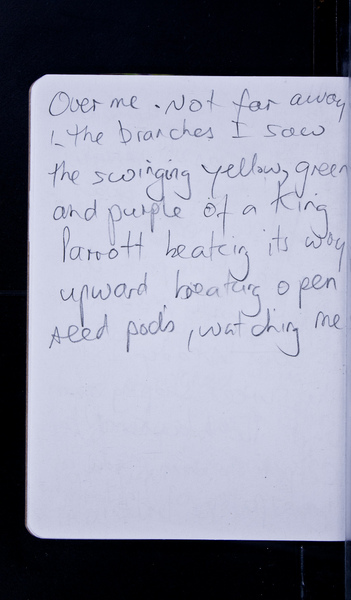 Over me. Not far away
in the branches I saw
the swinging yellow, green
and purple of a King
Parrott beating its way
upward, breaking open
seed pods, watching me